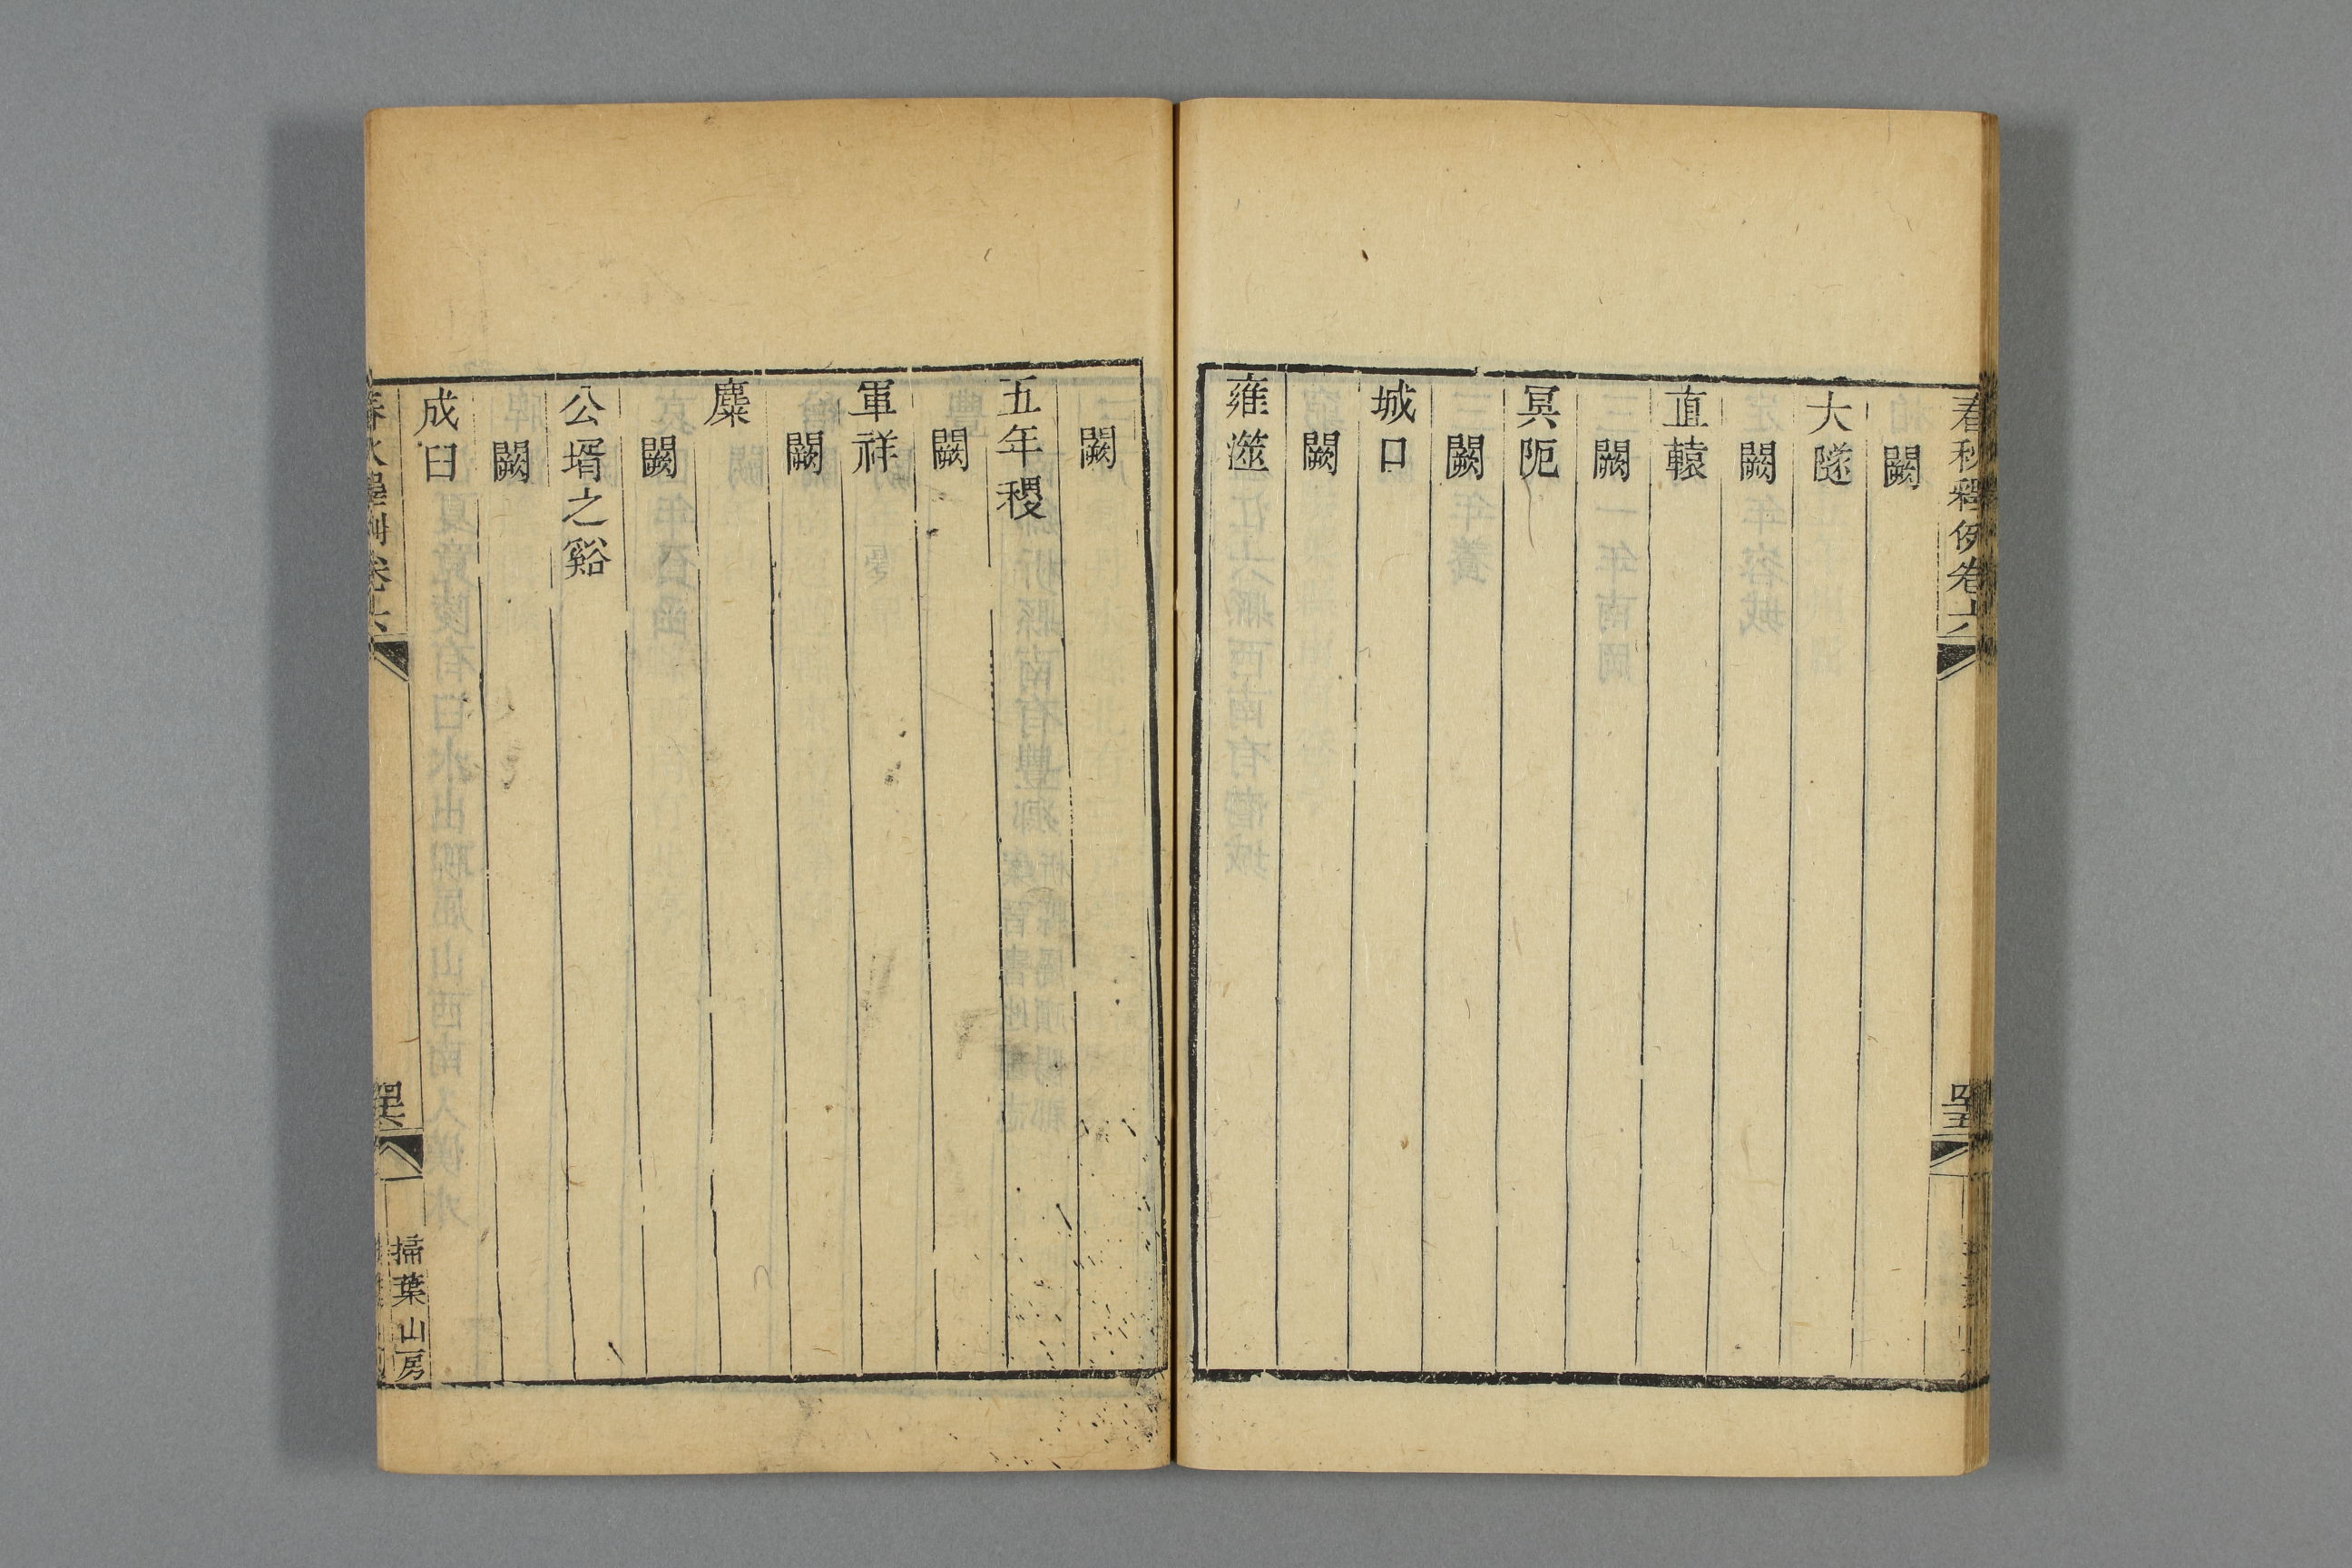 春秋釋例卷六
闕
大隧
闕
直轅
闕
冥阨
闕
城口
闕
雍澨
闕
五年稷
闕
軍祥
闕
麇
闕
公壻之谿
闕
成臼
掃葉山房